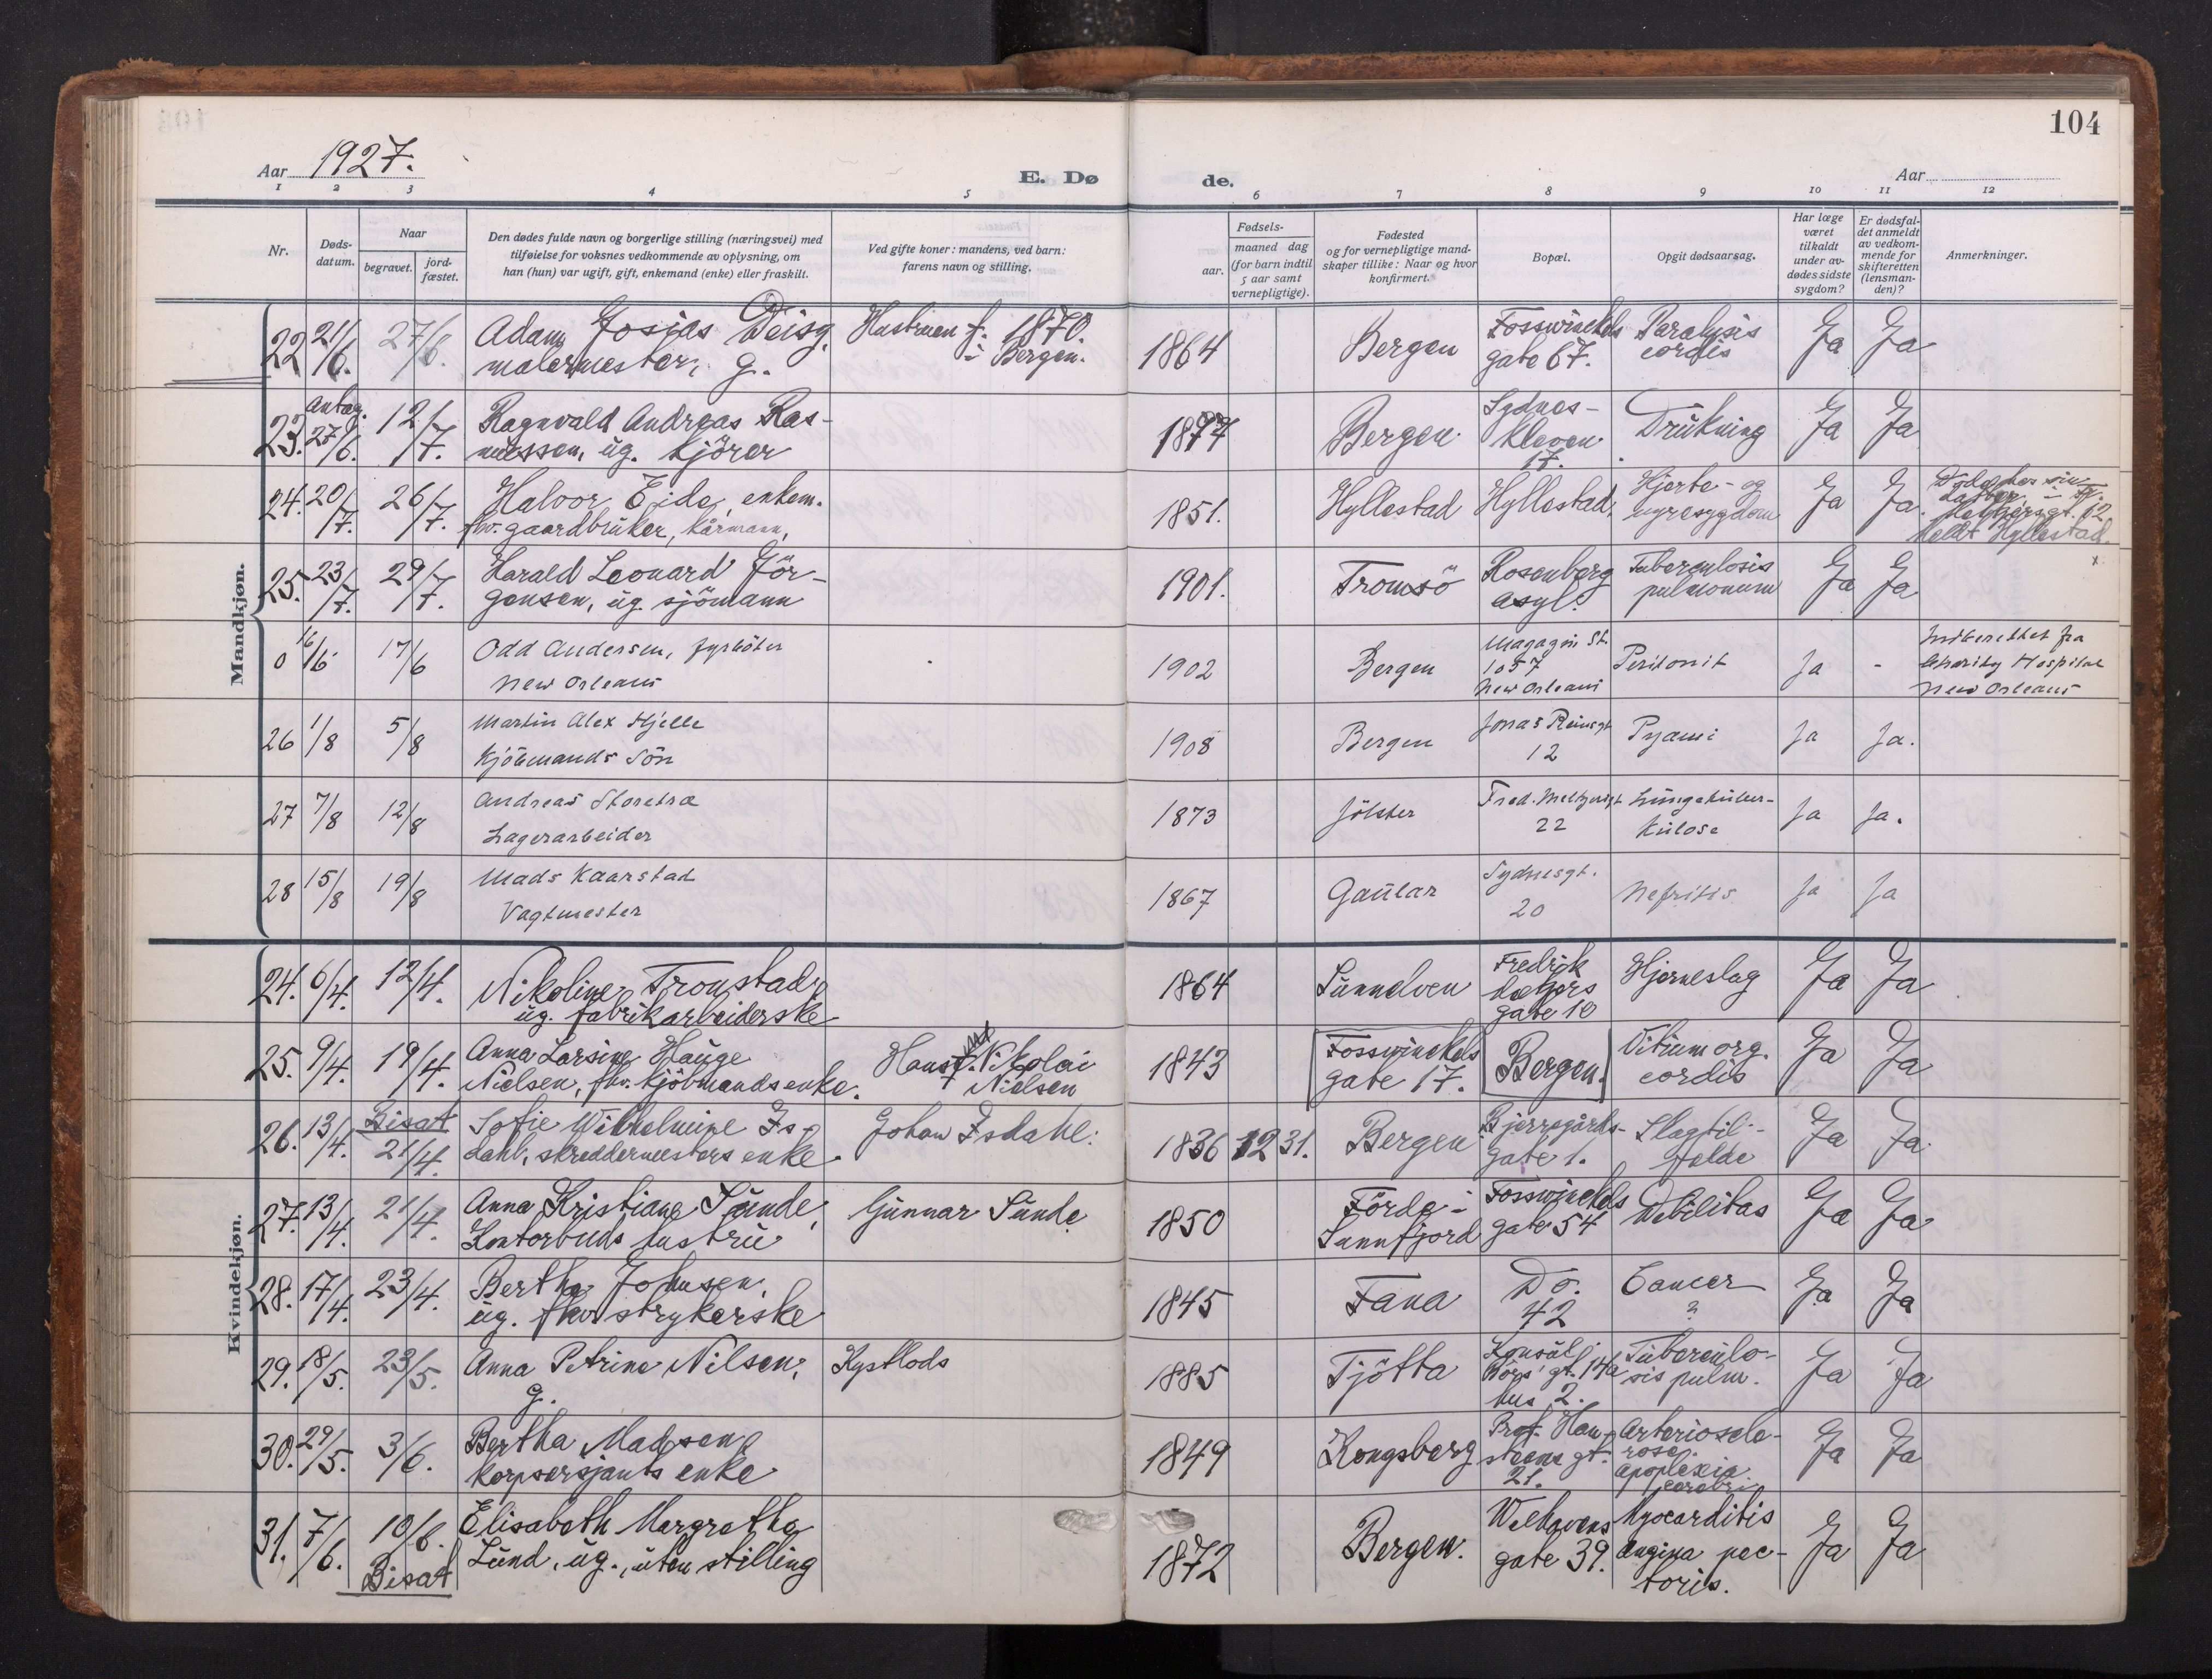 104
Aar 1927.
E. Dø
de.
Aar
1 2 3 4 5 6 7 8 9 10 11 12
Nr.
Døds-
datum.
Naar
begravet.
jord-
fæstet.
Den dødes fulde navn og borgerlige stilling (næringsvei) med
tilføielse for voksnes vedkommende av oplysning, om
han (hun) var ugift, gift, enkemand (enke) eller fraskilt.
Ved gifte koner: mandens, ved barn:
farens navn og stilling.
Fødsels-
aar.
maaned dag
(for barn indtil
5 aar samt
vernepligtige).
Fødested
og for vernepligtige mand-
skaper tillike: Naar og hvor
konfirmert.
Bopæl.
Opgit dødsaarsag.
Har læge
været
tilkaldt
under av-
dødes sidste
sygdom?
Er dødsfal-
det anmeldt
av vedkom-
mende for
skifteretten
(lensman-
den)?
Anmerkninger.
Mandkjøn.
22 21/6. 27/6.
Adam Josias Deisg.
malermester, g.
Hustruen f. 1870.
i Bergen.
1864
Bergen
Fosswinckels
gate 67.
Paralysis
cordis
Ja Ja
23. Antag. 27/6. 12/7.
Ragnvald Andreas Ras-
mussen, ug. kjörer
1877
Bergen
Sydnes-
kleven
17.
Drukning
Ja Ja
24. 20/7. 26/7.
Halvor Eide, enkem.
fhv. gaardbruker, kårmann,
1851.
Hyllestad
Hyllestad.
Hjerte- og
nyresygdom
Ja Ja.
Döde hos sin
datter i Fr.
Meltzersgt. 62
Meldt Hyllestad
x.
25. 23/7. 29/7.
Harald Leonard Jör-
gensen, ug. sjömann
1901.
Tromsö
Rosenberg
asyl.
Tuberculosis
pulmonum
Ja Ja
0 16/6 17/6
Odd Andersen, fyrböter
New Orleans
1902
Bergen
Magagin St.
1057
New Orleans
Peritonit
Ja -
Indberettet fra
Charity Hospital
New Orleans
26 1/8 5/8
Martin Alex Hjelle
Kjöbmands Sön
1908
Bergen
Jonas Reinsgt
12
Pyæmi
Ja Ja.
27 7/8 12/8
Andreas Storetræ
Lagerarbeider
1873
Jölster
Fred. Meltzersgt
22
Lungetuber-
kulose
Ja Ja.
28 15/8 19/8
Mads Kaarstad
Vagtmester
1867
Gaular
Sydnesgt.
20
Nefritis
Ja Ja
Kvindekjøn.
24. 6/4. 12/4.
Nikoline Tronstad,
ug. fabrikarbeiderske
1864
Sunnelven
Fredrik
Meltzers
gate 10
Hjerneslag
Ja Ja
25. 9/4. 19/4.
Anna Larsine Hauge
Nielsen, fhv. kjöbmandsenke.
Hans Nikolai
Nielsen
1843
Fosswinckels
gate 17.
Bergen.
Vitium org.
cordis
Ja Ja
26. 13/4. Bisat 21/4.
Sofie Wilhelmine Is-
dahl, skreddermesters enke.
Johan Isdahl.
1836 12 31.
Bergen
Bjerregårds-
gate 1.
Slagtil-
felde
Ja Ja
27. 13/4. 21/4.
Anna Kristiane Sunde,
Kontorbuds hustru
Gunnar Sunde
1850
Förde i
Sunnfjord
Fosswinckels
gate 54
Debilitas
Ja Ja
28. 17/4. 23/4.
Bertha Johnsen,
ug. fhv. strykerske
1845
Fana
Do.
42
Cancer
?
Ja Ja
29. 18/5. 23/5.
Anna Petrine Nilsen,
g.
Kystlods
1885
Tjötta
Konsul
Börs' gt. 14a
hus 2.
Tuberculo-
sis pulm.
Ja Ja
30. 29/5. 3/6.
Bertha Madsen,
korpsersjants enke
1849
Kongsberg
Prof. Han-
steens gt.
21.
Arteriosele-
rose.
apoplexia
cerebri
Ja Ja
31. 7/6. 10/6. Bisat
Elisabeth Margrethe
Lund, ug., uten stilling
1872
Bergen.
Welhavens
gate 39.
Myocarditis
Angina pec-
toris.
Ja Ja